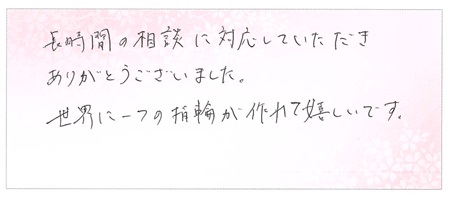 長時間の相談に対応していただき
ありがとうございました。
世界に一つの指輪が作れて嬉しいです。